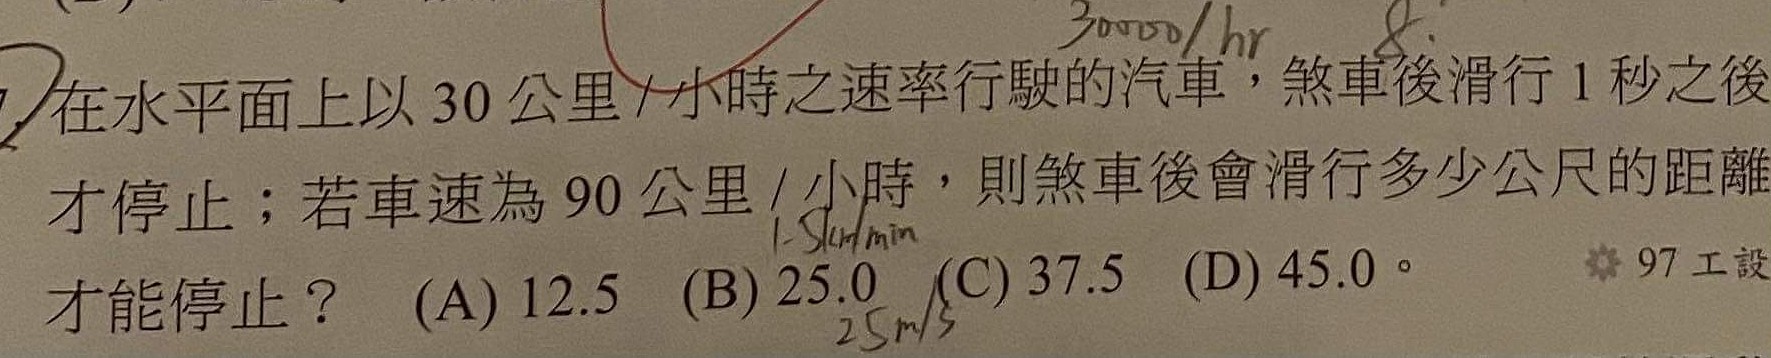 30000/hr 8.
在水平面上以 30 公里 / 小時之速率行駛的汽車，煞車後滑行 1 秒之後
才停止；若車速為 90 公里 / 小時，則煞車後會滑行多少公尺的距離
1.5km/min
才能停止？ (A) 12.5 (B) 25.0 (C) 37.5 (D) 45.0。 97 工設
25m/s